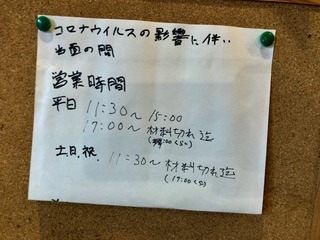 コロナウイルスの影響に伴い
当面の間
営業時間
平日 11:30～15:00
17:00～材料切れ迄
土,日,祝 11:30～材料切れ迄
(17:00くらい)